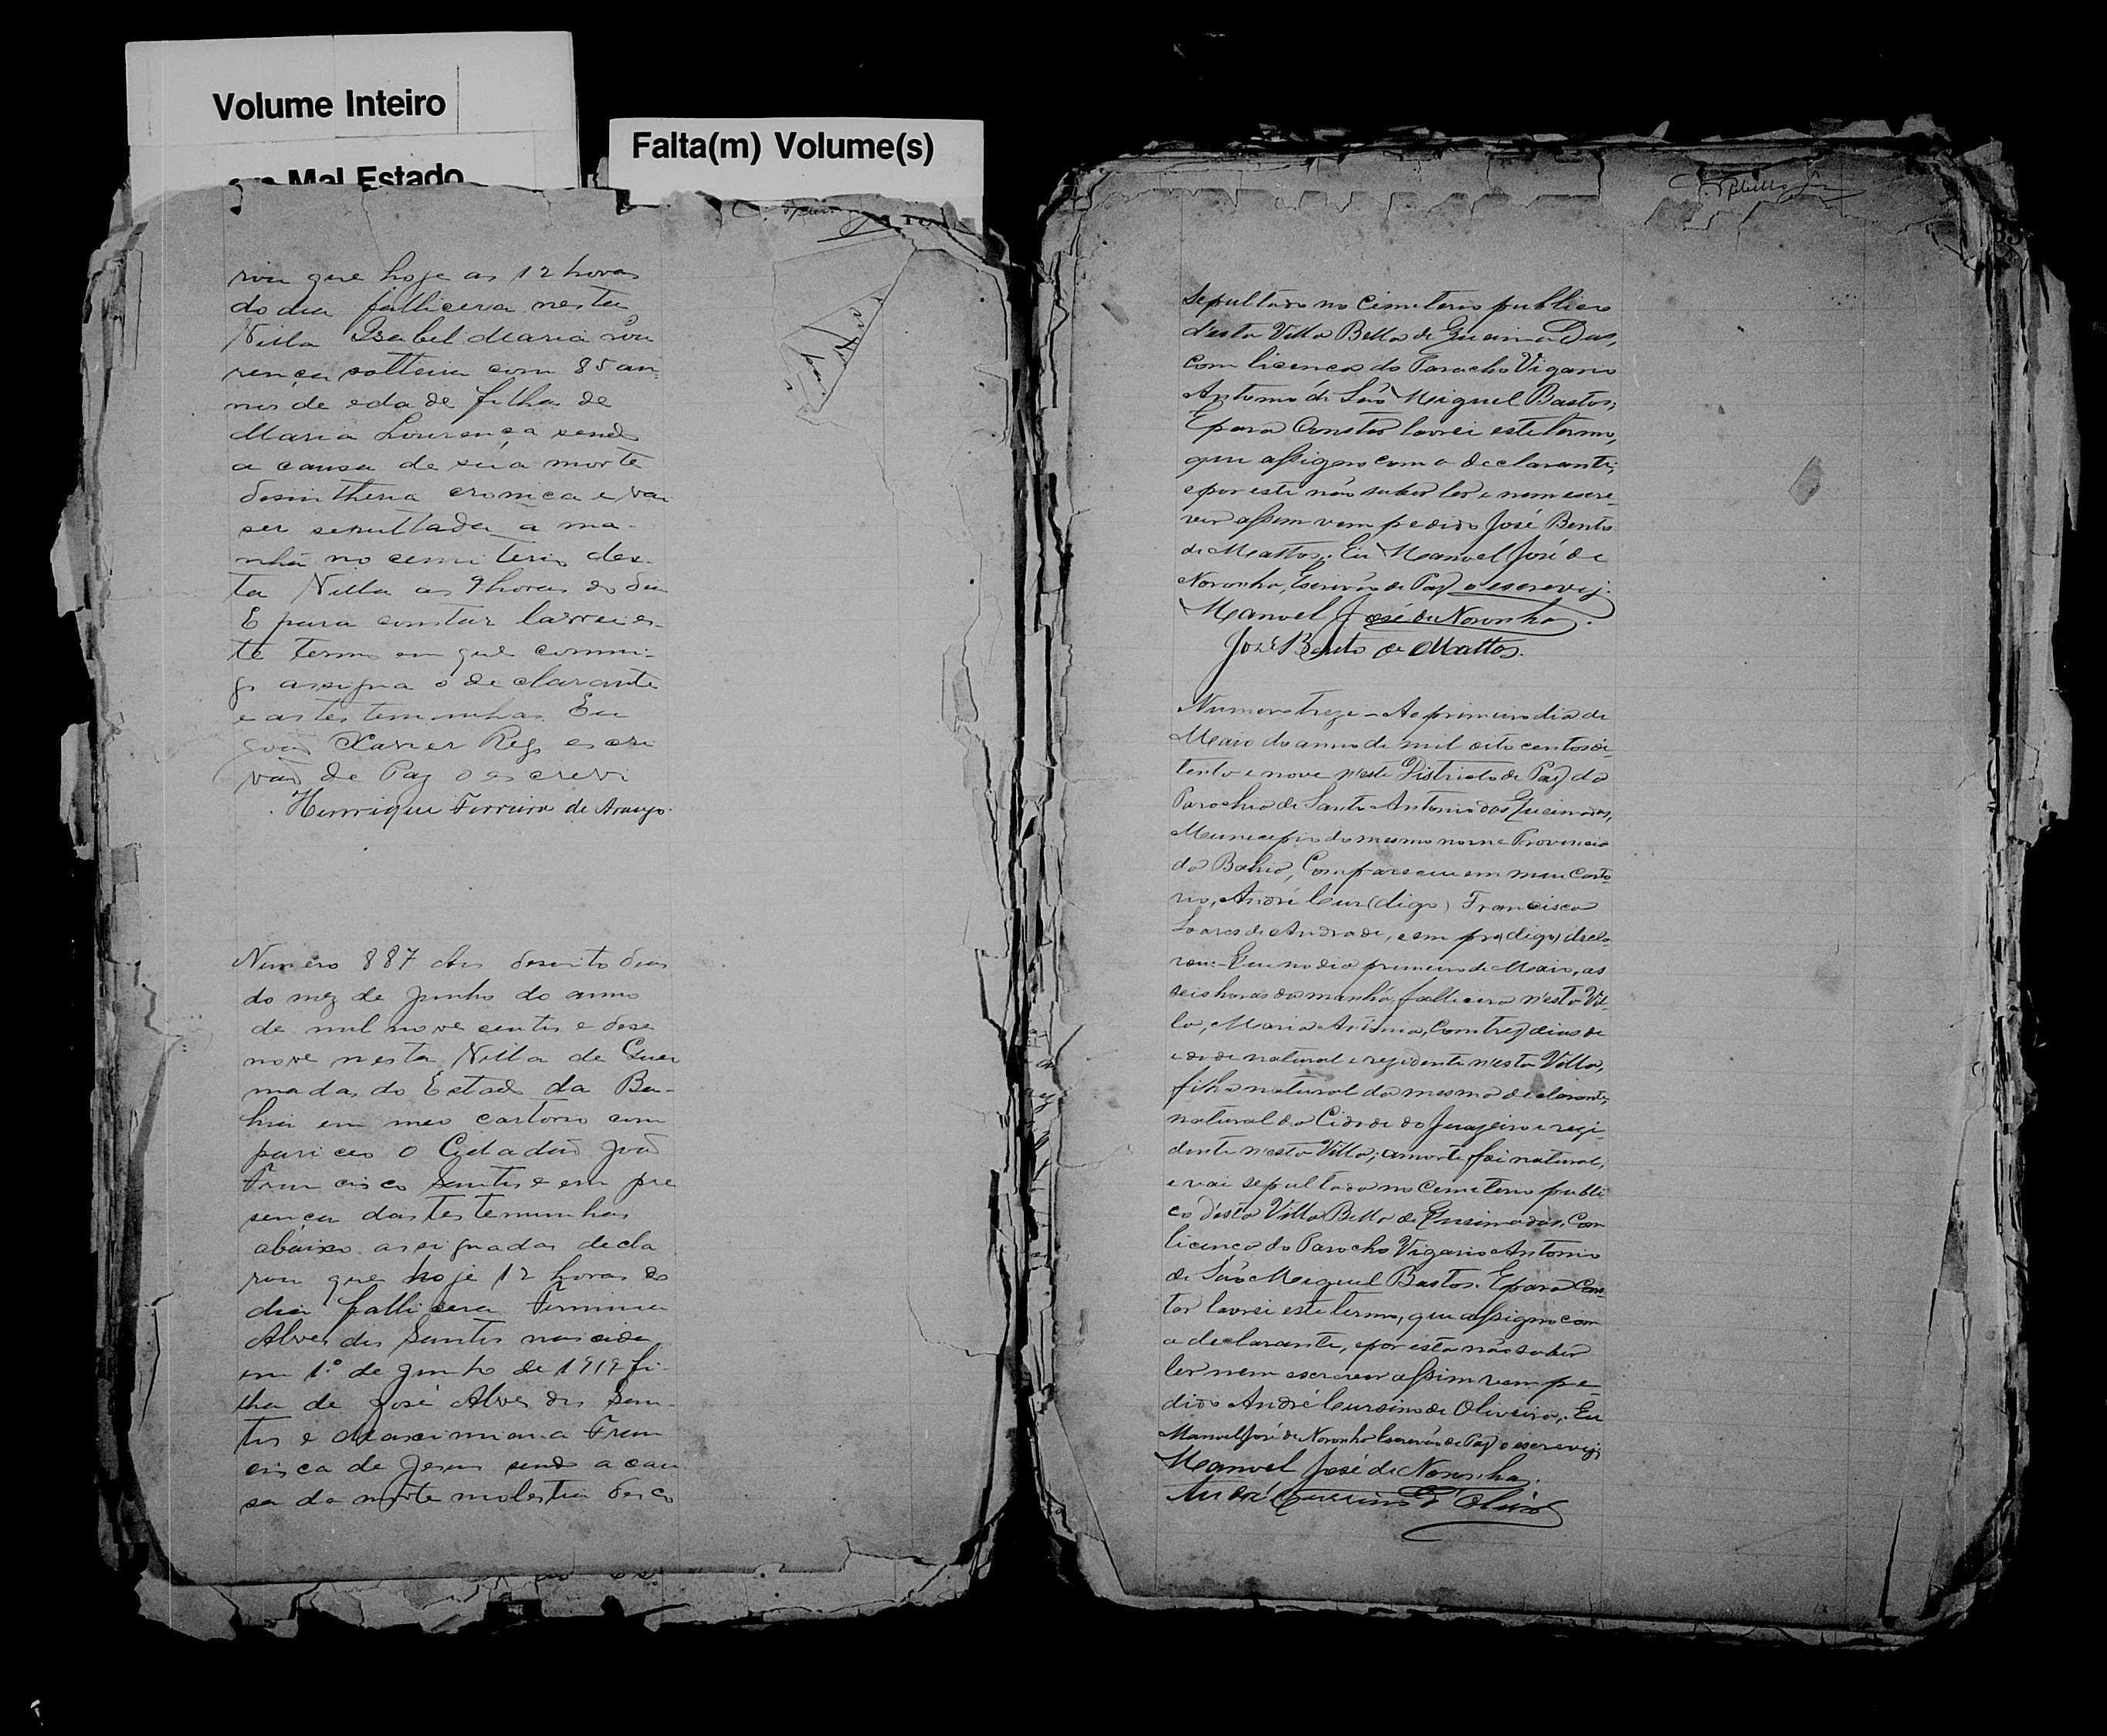 Volume Inteiro
Mal Estado
Falta(m) Volume(s)
rou que hoje as 12 horas
do dia fallicera nesta
Villa Isabel Maria Lou
rença solteira com 85 an
nos de eda de filha de
Maria Lourença sendo
a causa de sua morte
desintheria cronica e vai
ser sepultada a ma-
nhã no cemiterio des-
ta Villa as 9 horas do dia
E para constar lavrei es-
te termo em que commi-
go assigna o declarante
e as testemunhas Eu
João Xavier Regs escri
vão de Paz o escrevi
Henrique Ferreira de Araujo.
Numero 887 Aos desoito dias
do mez de Junho do anno
de mil nove centos e dese
nove nesta Villa de Quei
madas do Estado da Ba-
hia em meo cartorio com
pariceo o Cidadão João
Francisco Santos e em pre
sença das testemunhas
abaixo assignadas decla
rou que hoje 12 horas do
dia fallicera Firminia
Alves dos Santos nascida
em 1º de Junho de 1919 fi-
lha de José Alves dos San-
tos e Maximiana Fran
cisca de Jesus sendo a cau
sa da morte molestia desco
Sepultado no Cimiterio publico
d'esta Villa Bella de Queimadas,
com licença do Parocho Vigario
Antonio de São Miguel Bastos;
E para Constar lavrei este termo,
que assigno com o declarante;
e por este não saber ler e nem escre-
ver assim vem pedido José Bento
de Mattos. Eu Manoel José de
Noronha, Escrivão de Paz o escrevij.
Manoel José de Noronha.
José Bento de Mattos.
Numero treze - Ao primeiro dia de
Maio do anno de mil oito centos oi-
tento e nove n'este Districto de Paz da
Parochia de Santo Antonio das Queimadas,
Municipio do mesmo nome Provincia
da Bahia, Compareceu em meu Carto-
rio, André Cur (digo) Francisca
Soares de Andrade, e em pre (digo) decla-
rou - Que no dia primeiro de Maio, as
seis horas da manhã, fallicera n'esta Vil-
la, Maria Antonia, Com trez dias de
idade natural e rezidente n'esta Villa,
filha natural da mesma declarante,
natural da Cidade do Juazeiro e rezi-
dente n'esta Villa; a morte foi natural,
e vai sepultada no Cemeterio publi
co d'esta Villa Bella de Queimadas, Com
licença do Parocho Vigario Antonio
de São Miguel Bastos. E para Cons-
tar lavrei este termo, que assigno com
a declarante, e por esta não saber
ler nem escrever assim vem pe-
dido André Cursino de Oliveira. Eu
Manoel José de Noronha Escrivão de Paz o escrevij;
Manoel José de Noronha.
André Cursino d'Olivrª